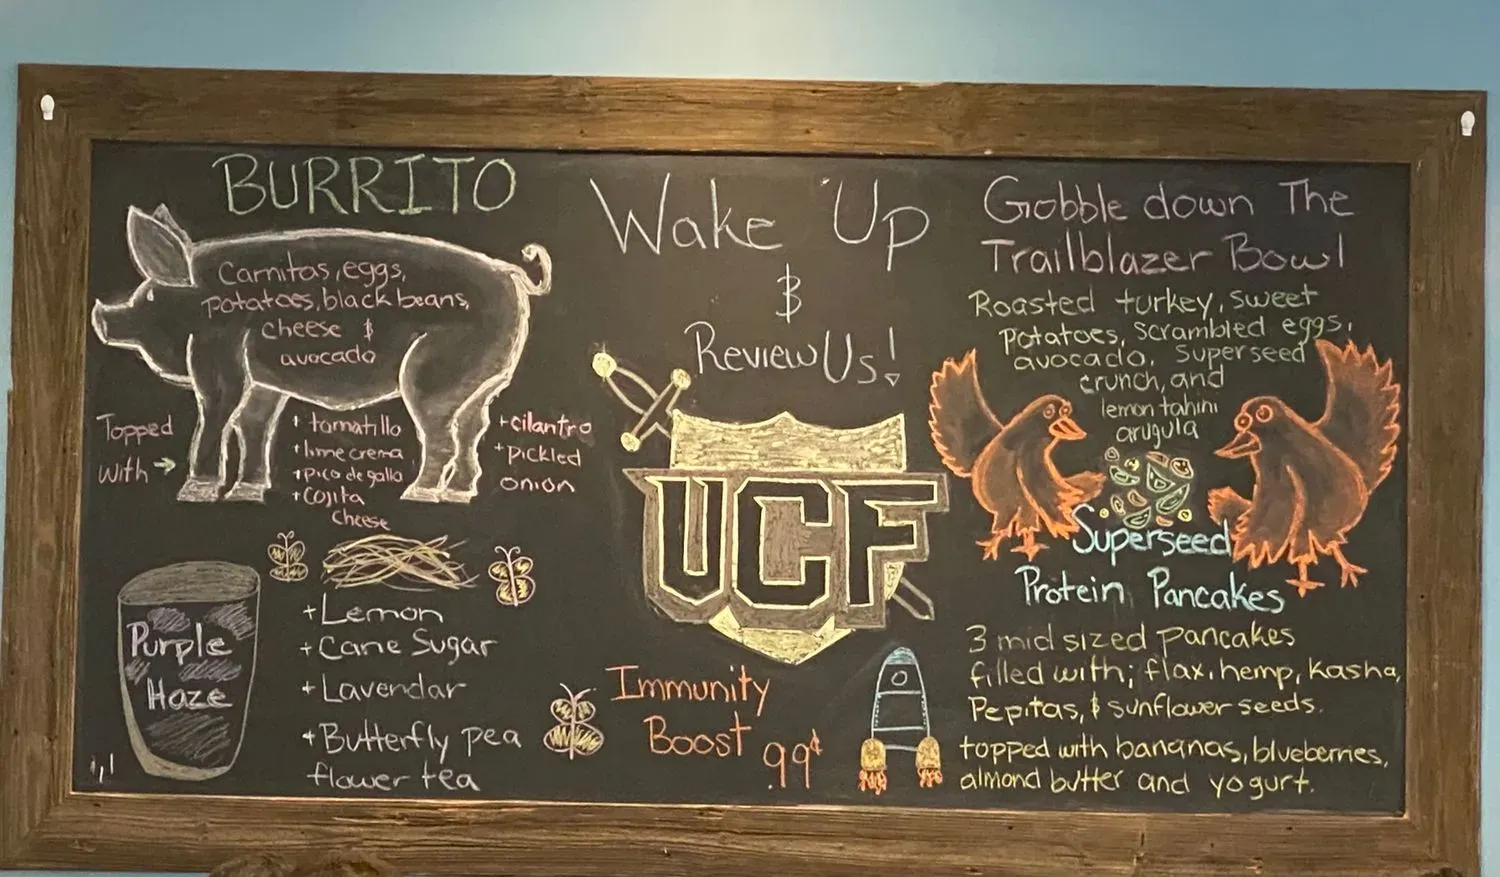 BURRITO
Carnitas, eggs,
potatoes, black beans,
cheese &
avocado
Topped
with →
+ tomatillo
+ lime crema
+ pico de gallo
+ cojita
cheese
+ cilantro
+ pickled
onion
Purple
Haze
+ Lemon
+ Cane Sugar
+ Lavendar
+ Butterfly pea
flower tea
Wake Up
&
Review Us!
UCF
Immunity
Boost .99¢
Gobble down The
Trailblazer Bowl
Roasted turkey, sweet
potatoes, scrambled eggs,
avocado, superseed
crunch, and
lemon tahini
arugula
Superseed
Protein Pancakes
3 mid sized pancakes
filled with; flax, hemp, kasha,
Pepitas, & sunflower seeds.
topped with bananas, blueberries,
almond butter and yogurt.